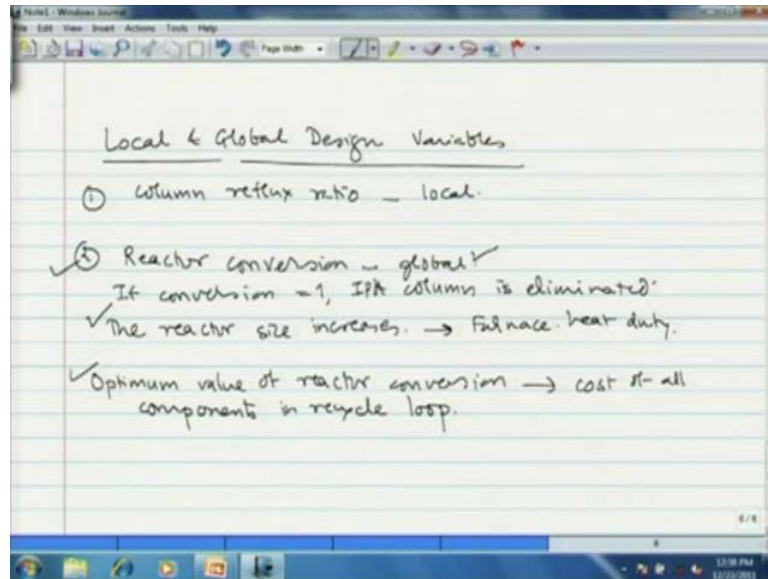 Note1 - Windows Journal
File Edit View Insert Actions Tools Help
Page Width
Local & Global Design Variables
① Column reflux ratio - local.
② Reactor conversion - global
If conversion = 1, IPA column is eliminated.
The reactor size increases. → Furnace heat duty.
Optimum value of reactor conversion → cost of all
components in recycle loop.
6/6
6
12:38 PM
12/23/2011